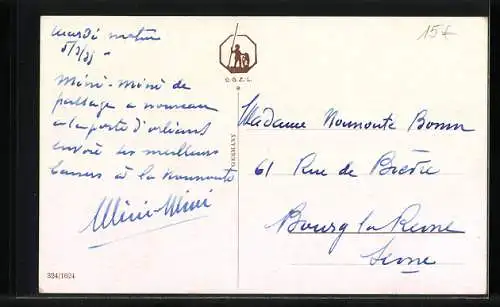 mardi matin
5/3/35
15€
Mini-Mini de
passage a nouveau
a la porte d'orléans
envoie ses meilleurs
baisers à la Nounoute
Mini-Mini
O.G.Z.L.
GERMANY
324/1624
Madame Nounoute Bonin
61 Rue de Bièvre
Bourg la Reine
Seine